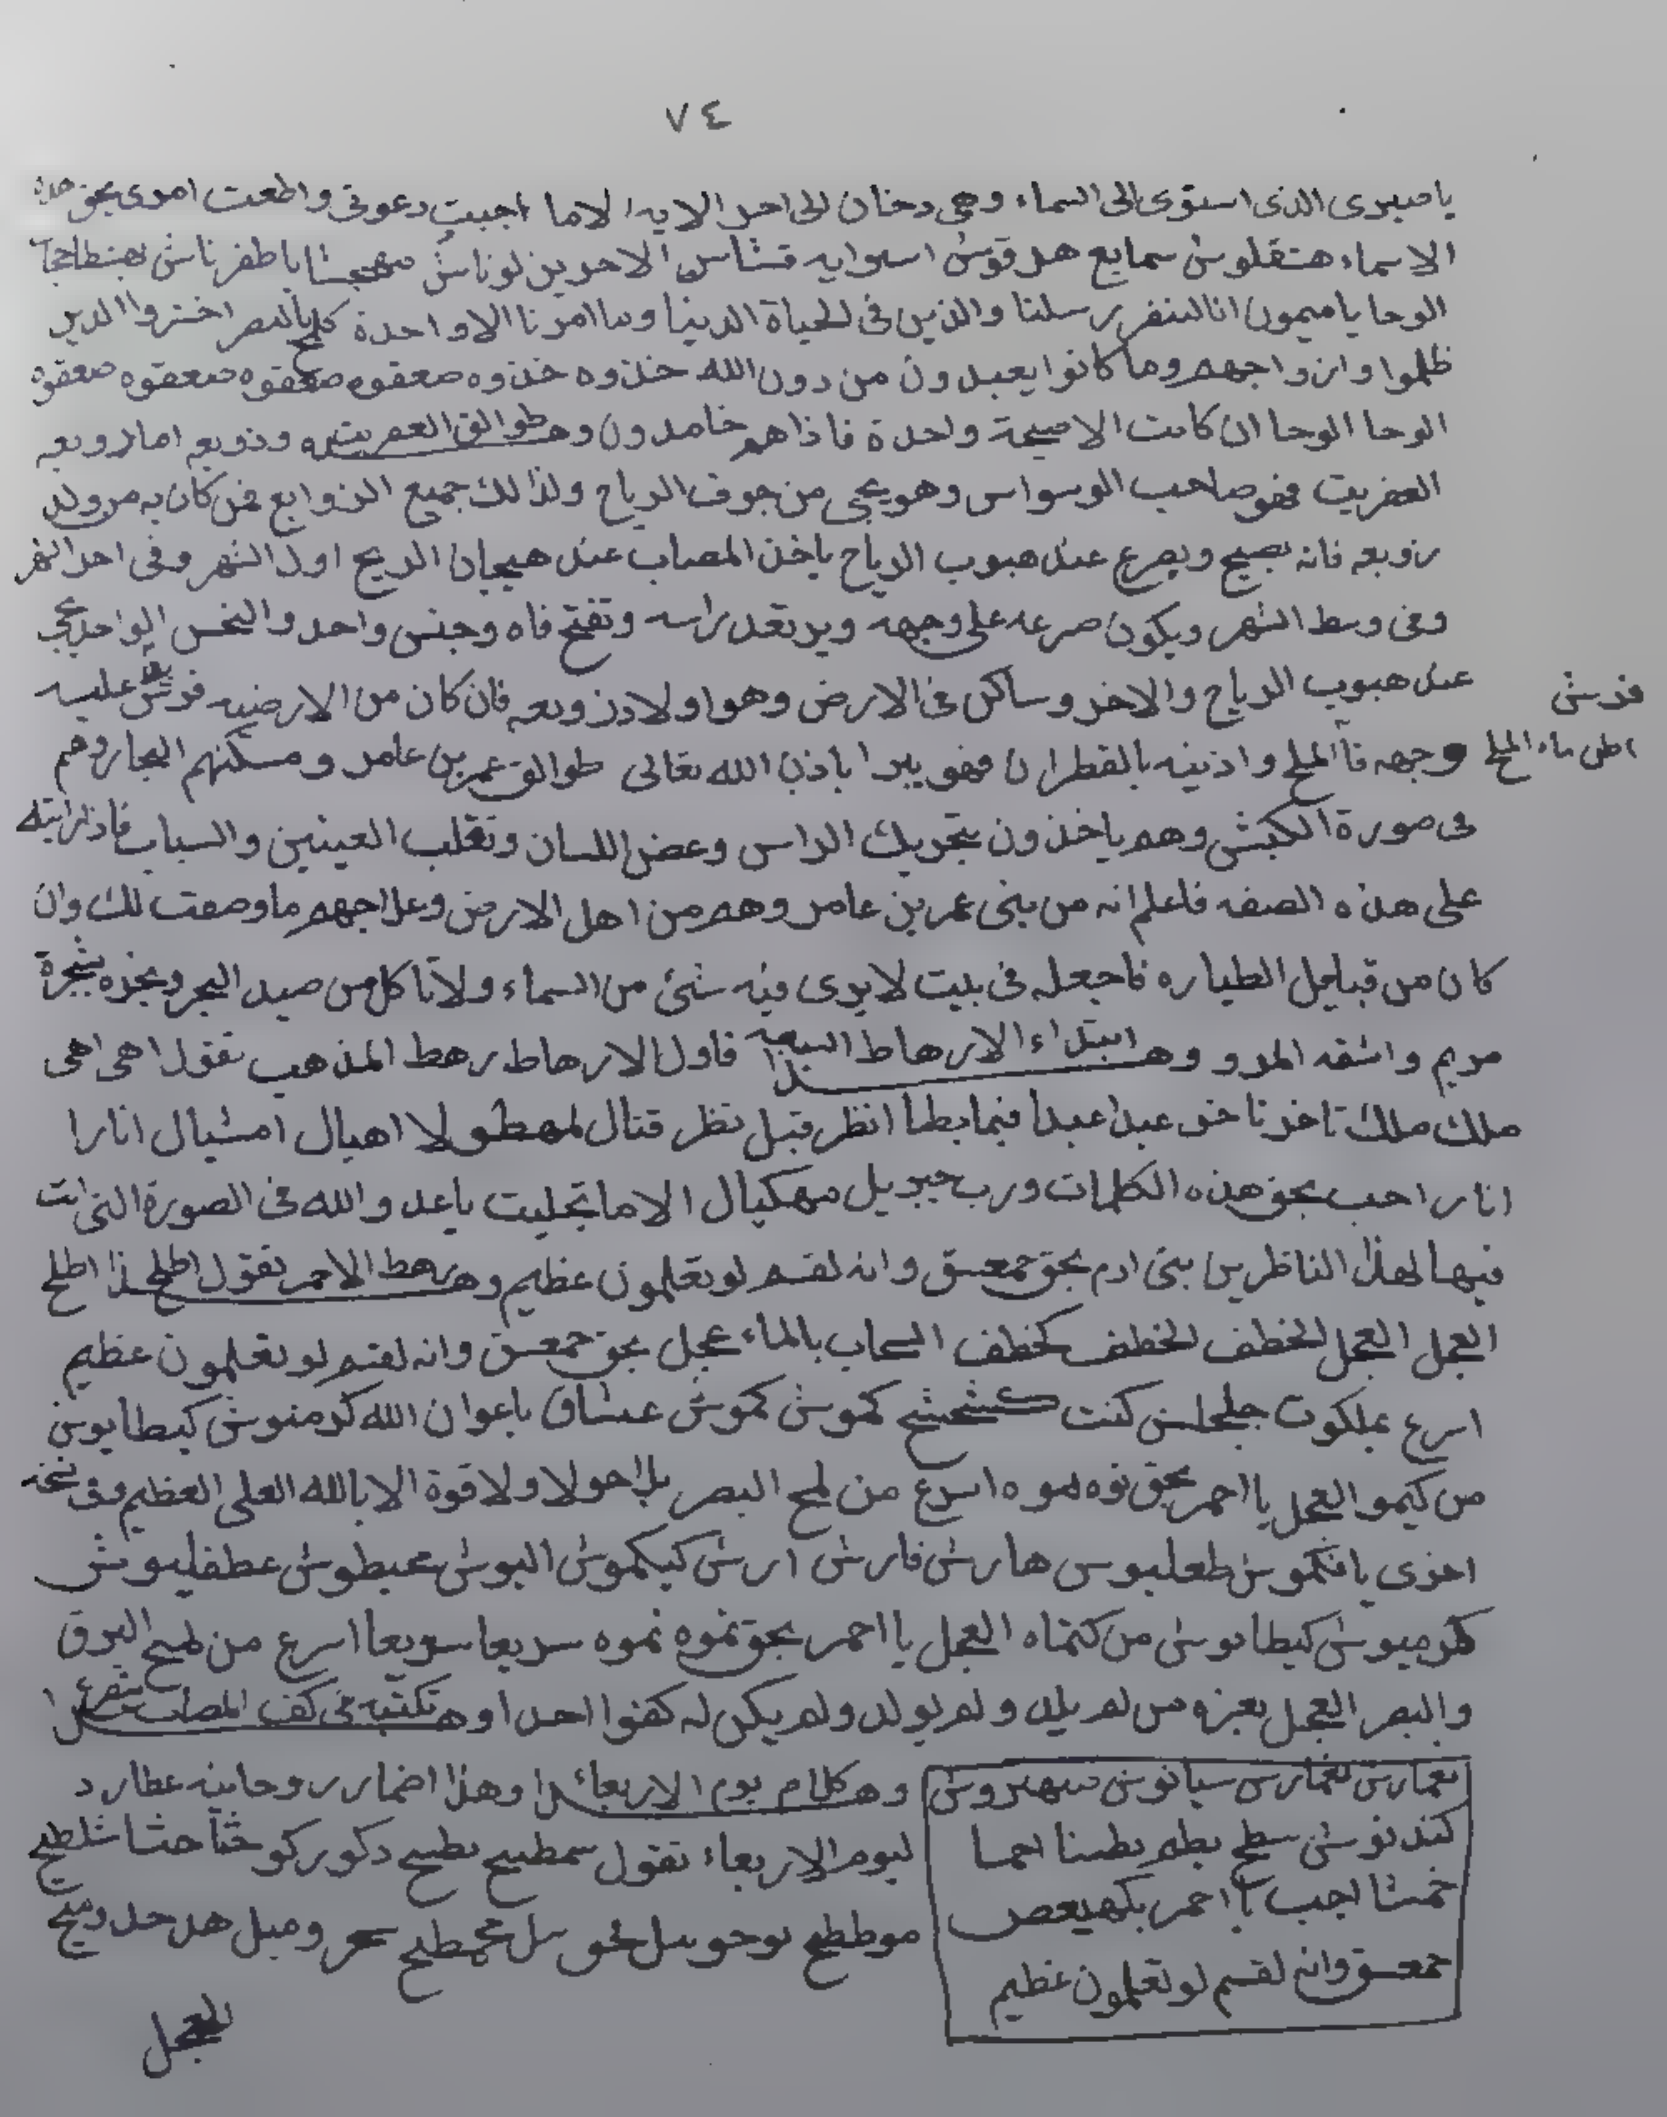 ٧٤
يا صبرى الذى استوى الى السماء وهى دخان الى اخر الايه الاما اجبت دعوتى واطعت امرى بحق هذه
الاسماء هتقلوش سمايع هد قوش اسوايه قشاس الاحرين لوناش باطفرناش
الوحا يا ميمون انا لننصر رسلنا والذين فى الحياة الدينا وما امرنا الا واحدة كلمح بالبصر احشروا الذين
ظلموا وازواجهم وما كانوا يعبدون من دون الله خذوه خذوه صعقوه صعقوه صعقوه صعقوه
الوحا الوحا ان كانت الا صيحة واحدة فاذاهم خامدون وهذا طوالق العفريت وزوبعه اما زوبعه
العفريت فهو صاحب الوسواس وهو يجى من جوف الرياح ولذالك جميع الزوابع فمن كان به من ولد
زوبعه فانه يصيح ويصرع عند هبوب الرياح ياخذ المصاب عند هيجان الريح اول الشهر وفى اخر الشهر
وفى وسط الشهر ويكون صرعه على وجهه ويرتعد راسه وتفتح فاه وجنس واحد والنحس الواحد يجى
عند هبوب الرياح والاخر وساكن فى الارض وهو اولاد زوبعه فان كان من الارضيه فرش عليه
فرش
وجهه بماء الملح واذنيه بالقطران فهو يبرا باذن الله تعالى طوالق عمر بن عامر ومسكنهم البحار وهم
ماء الملح
فى صورة الكبش وهم ياخذون بتحريك الراس وعض اللسان وتقلب العينين والسباب فاذا رايته
على هذه الصفه فاعلم انه من بنى عمر بن عامر وهم من اهل الارض وعلاجهم ما وصفت لك وان
كان من قبايل الطياره فاجعله فى بيت لا يرى فيه شئ من السماء ولا تاكل من صيد البحر وبخره بشجرة
مريم واسقه المرو وهذا ابتداء الارهاط السبعه فاول الارهاط رهط المذهب تقول اهى اهى
ملك ملك تاخر تاخر عبدا عبدا فيما بطا انظر قبل نظر قتال لمهطو لا اهيال امشيال انارا
انارا احب بحق هذه الكلمات ورب جبريل ميكيال الاما تجليت يا عدو الله فى الصورة التى انت
فيها لهذا الناظر من بنى ادم بحق حمعسق وانه لقسم لو تعلمون عظيم وهذا رهط الاحمر تقول اطلح اطلح
العجل العجل الخطف الخطف كخطف السحاب بالماء عجل بحق حمعسق وانه لقسم لو تعلمون عظيم
اسرع بملكوت جلجلش كنت كشخشخ كموش كموش عشاق باعوان الله كرمنوش كيطايوش
من كيمو العجل يا احمر بحق نوه نموه اسرع من لمح البصر بلا حول ولا قوة الا بالله العلى العظيم وفى نسخه
اخرى يا فكموش طعليوس هارش فارش ارش كيكموش اليوش عيطوش عطفليوش
كرميوش كيطايوش من كتماه العجل يا احمر بحق نموه نموه سريعا سريعا اسرع من لمح البرق
والبصر العجل بعزة من لم يلد ولم يولد ولم يكن له كفوا احد وهذا تكتبه فى كف المصاب
بعمارش بعمارش سيانوش سهروش
كندنوش سطح بطم بطسنا
خمشا اجب يا احمر بكهيعص
حمعسق وانه لقسم لو تعلمون عظيم
وهذا كلام يوم الاربعاء وهذا اضمار روحانيه عطارد
ليوم الاربعاء تقول سمطيح بطيح دكور كوخثا حثا شلطيح
موططيح
العجل